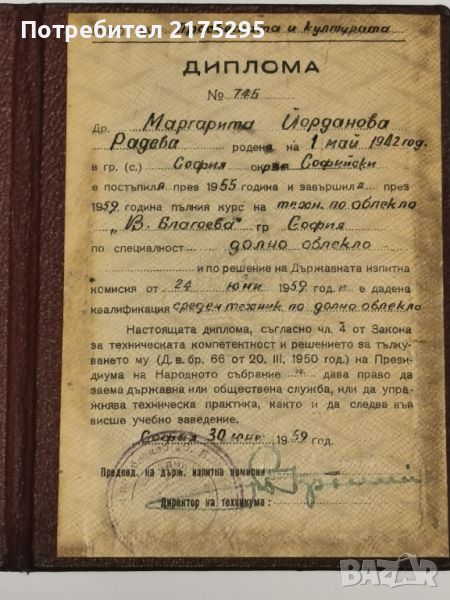 Потребител 2175295
Просветата и културата
ДИПЛОМА
№ 745
Др. Маргарита Йорданова
Радева родена на 1 май 1942 год.
в гр. (с.) София окръг Софийски
е постъпила през 1955 година и завършила през
1959 година пълния курс на техн. по облекло
„В. Благоева" гр София
по специалност долно облекло
и по решение на Държавната изпитна
комисия от 24 юни 1959 год. и е дадена
квалификация среден техник по долно облекло
Настоящата диплома, съгласно чл. 4 от Закона
за техническата компетентност и решението за тълку-
ването му (Д. в. бр. 66 от 20. III. 1950 год.) на Прези-
диума на Народното събрание дава право да
заема държавна или обществена служба, или да упра-
жнява техническа практика, както и да следва във
висше учебно заведение.
София 30 юни 1959 год.
Председ. на държ. изпитна комисия
Директор на техникума:
BAZAR
.bg